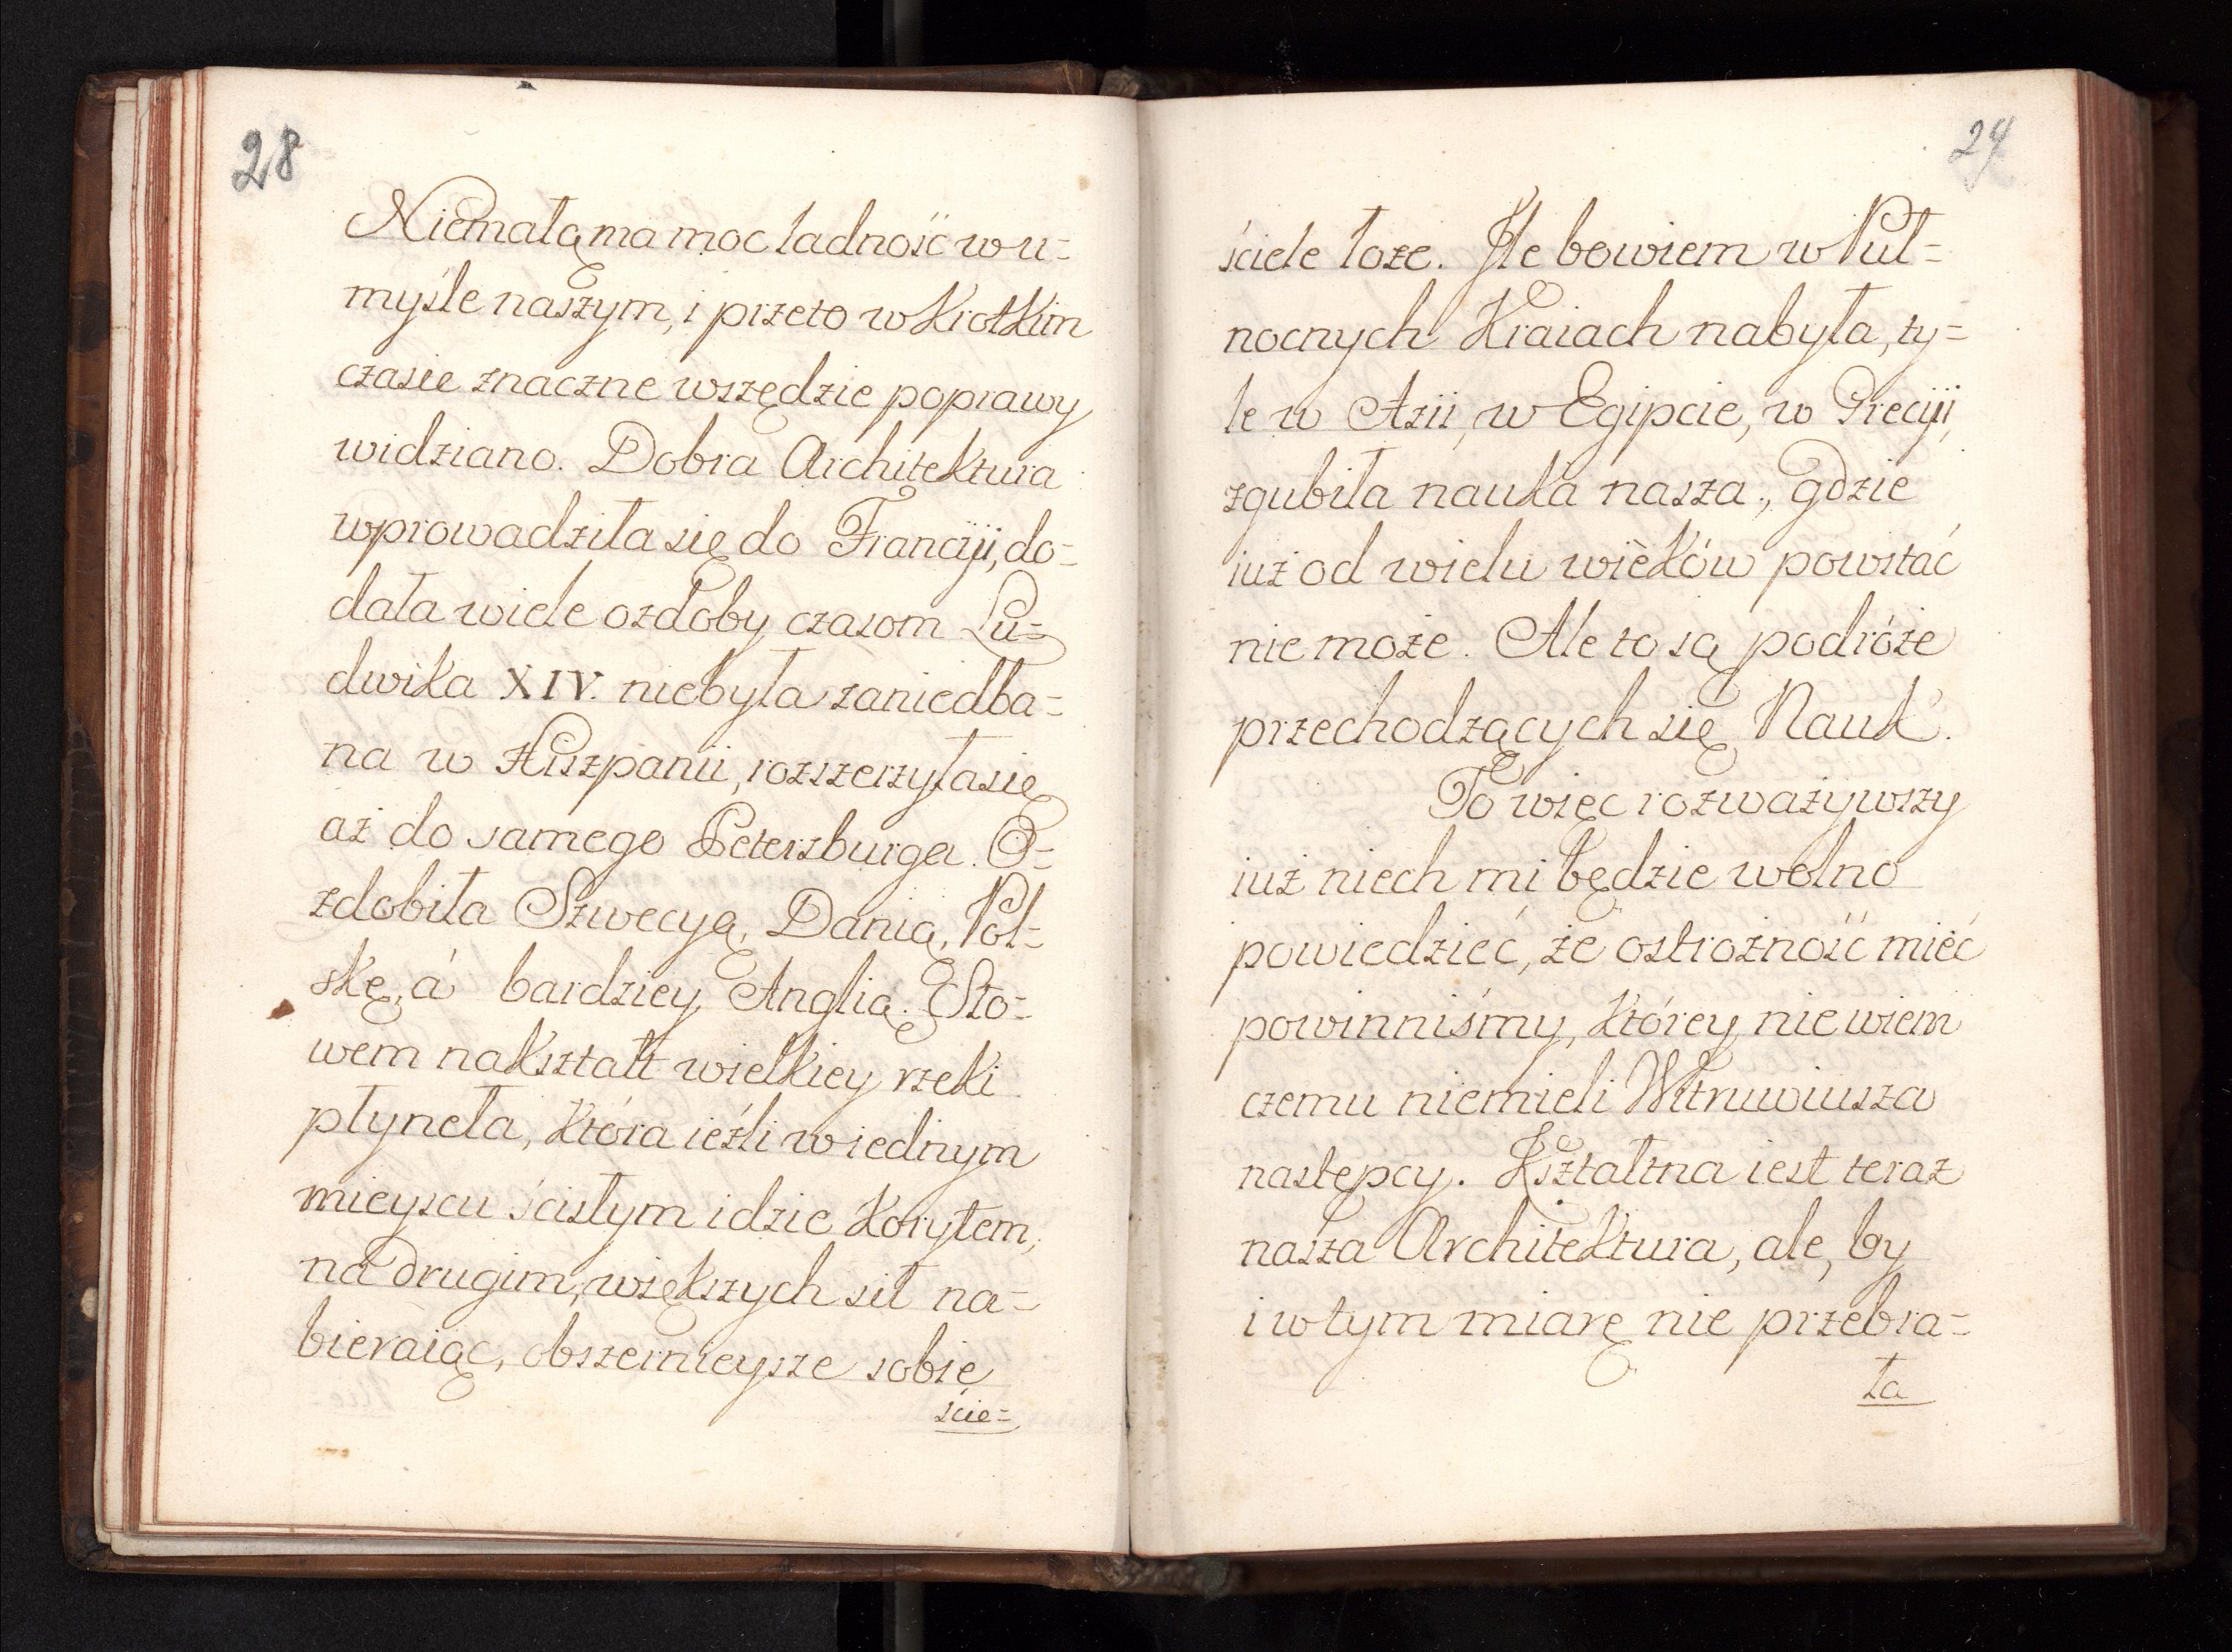 28
Niemałą ma moc ładność w u=
myśle naszym, i przeto w krotkim
czasie znaczne wszędzie poprawy
widziano. Dobra Architektura
wprowadziła się do Francyi, do=
dała wiele ozdoby czasom Lu=
dwika XIV. niebyła zaniedba=
na w Hiszpanii, rozszerzyła się
aż do samego Petersburga. O=
zdobiła Szwecyą, Danią, Pol=
skę, á bardziey Anglią. Sło=
wem nakształt wielkiey rzeki
płyneła, która ieśli w iednym
mieyscu ścisłym idzie korytem,
na drugim, większych sił na=
bieraiąc, obszernieysze sobie
ście=
29
ściele łoże. Ile bowiem w Puł=
nocnych Kraiach nabyła, ty=
le w Azii, w Egipcie, w Grecyi,
zgubiła nauka nasza, gdzie
iuż od wielu wieków powstać
nie może. Ale to są podróże
przechodzących się Nauk.
To więc rozważywszy
iuż niech mi będzie wolno
powiedzieć, że ostrożność mieć
powinniśmy, którey nie wiem
czemu niemieli Witruwiusza
nastepcy. Kształtna iest teraz
nasza Architektura, ale, by
i w tym miarę nie przebra=
ła